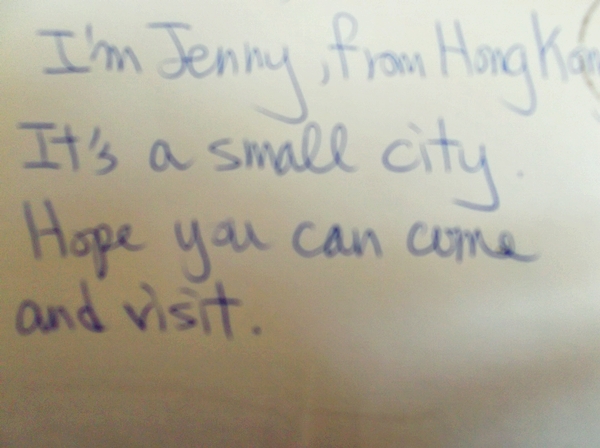 I'm Jenny, from Hong Kon
It's a small city.
Hope you can come
and visit.